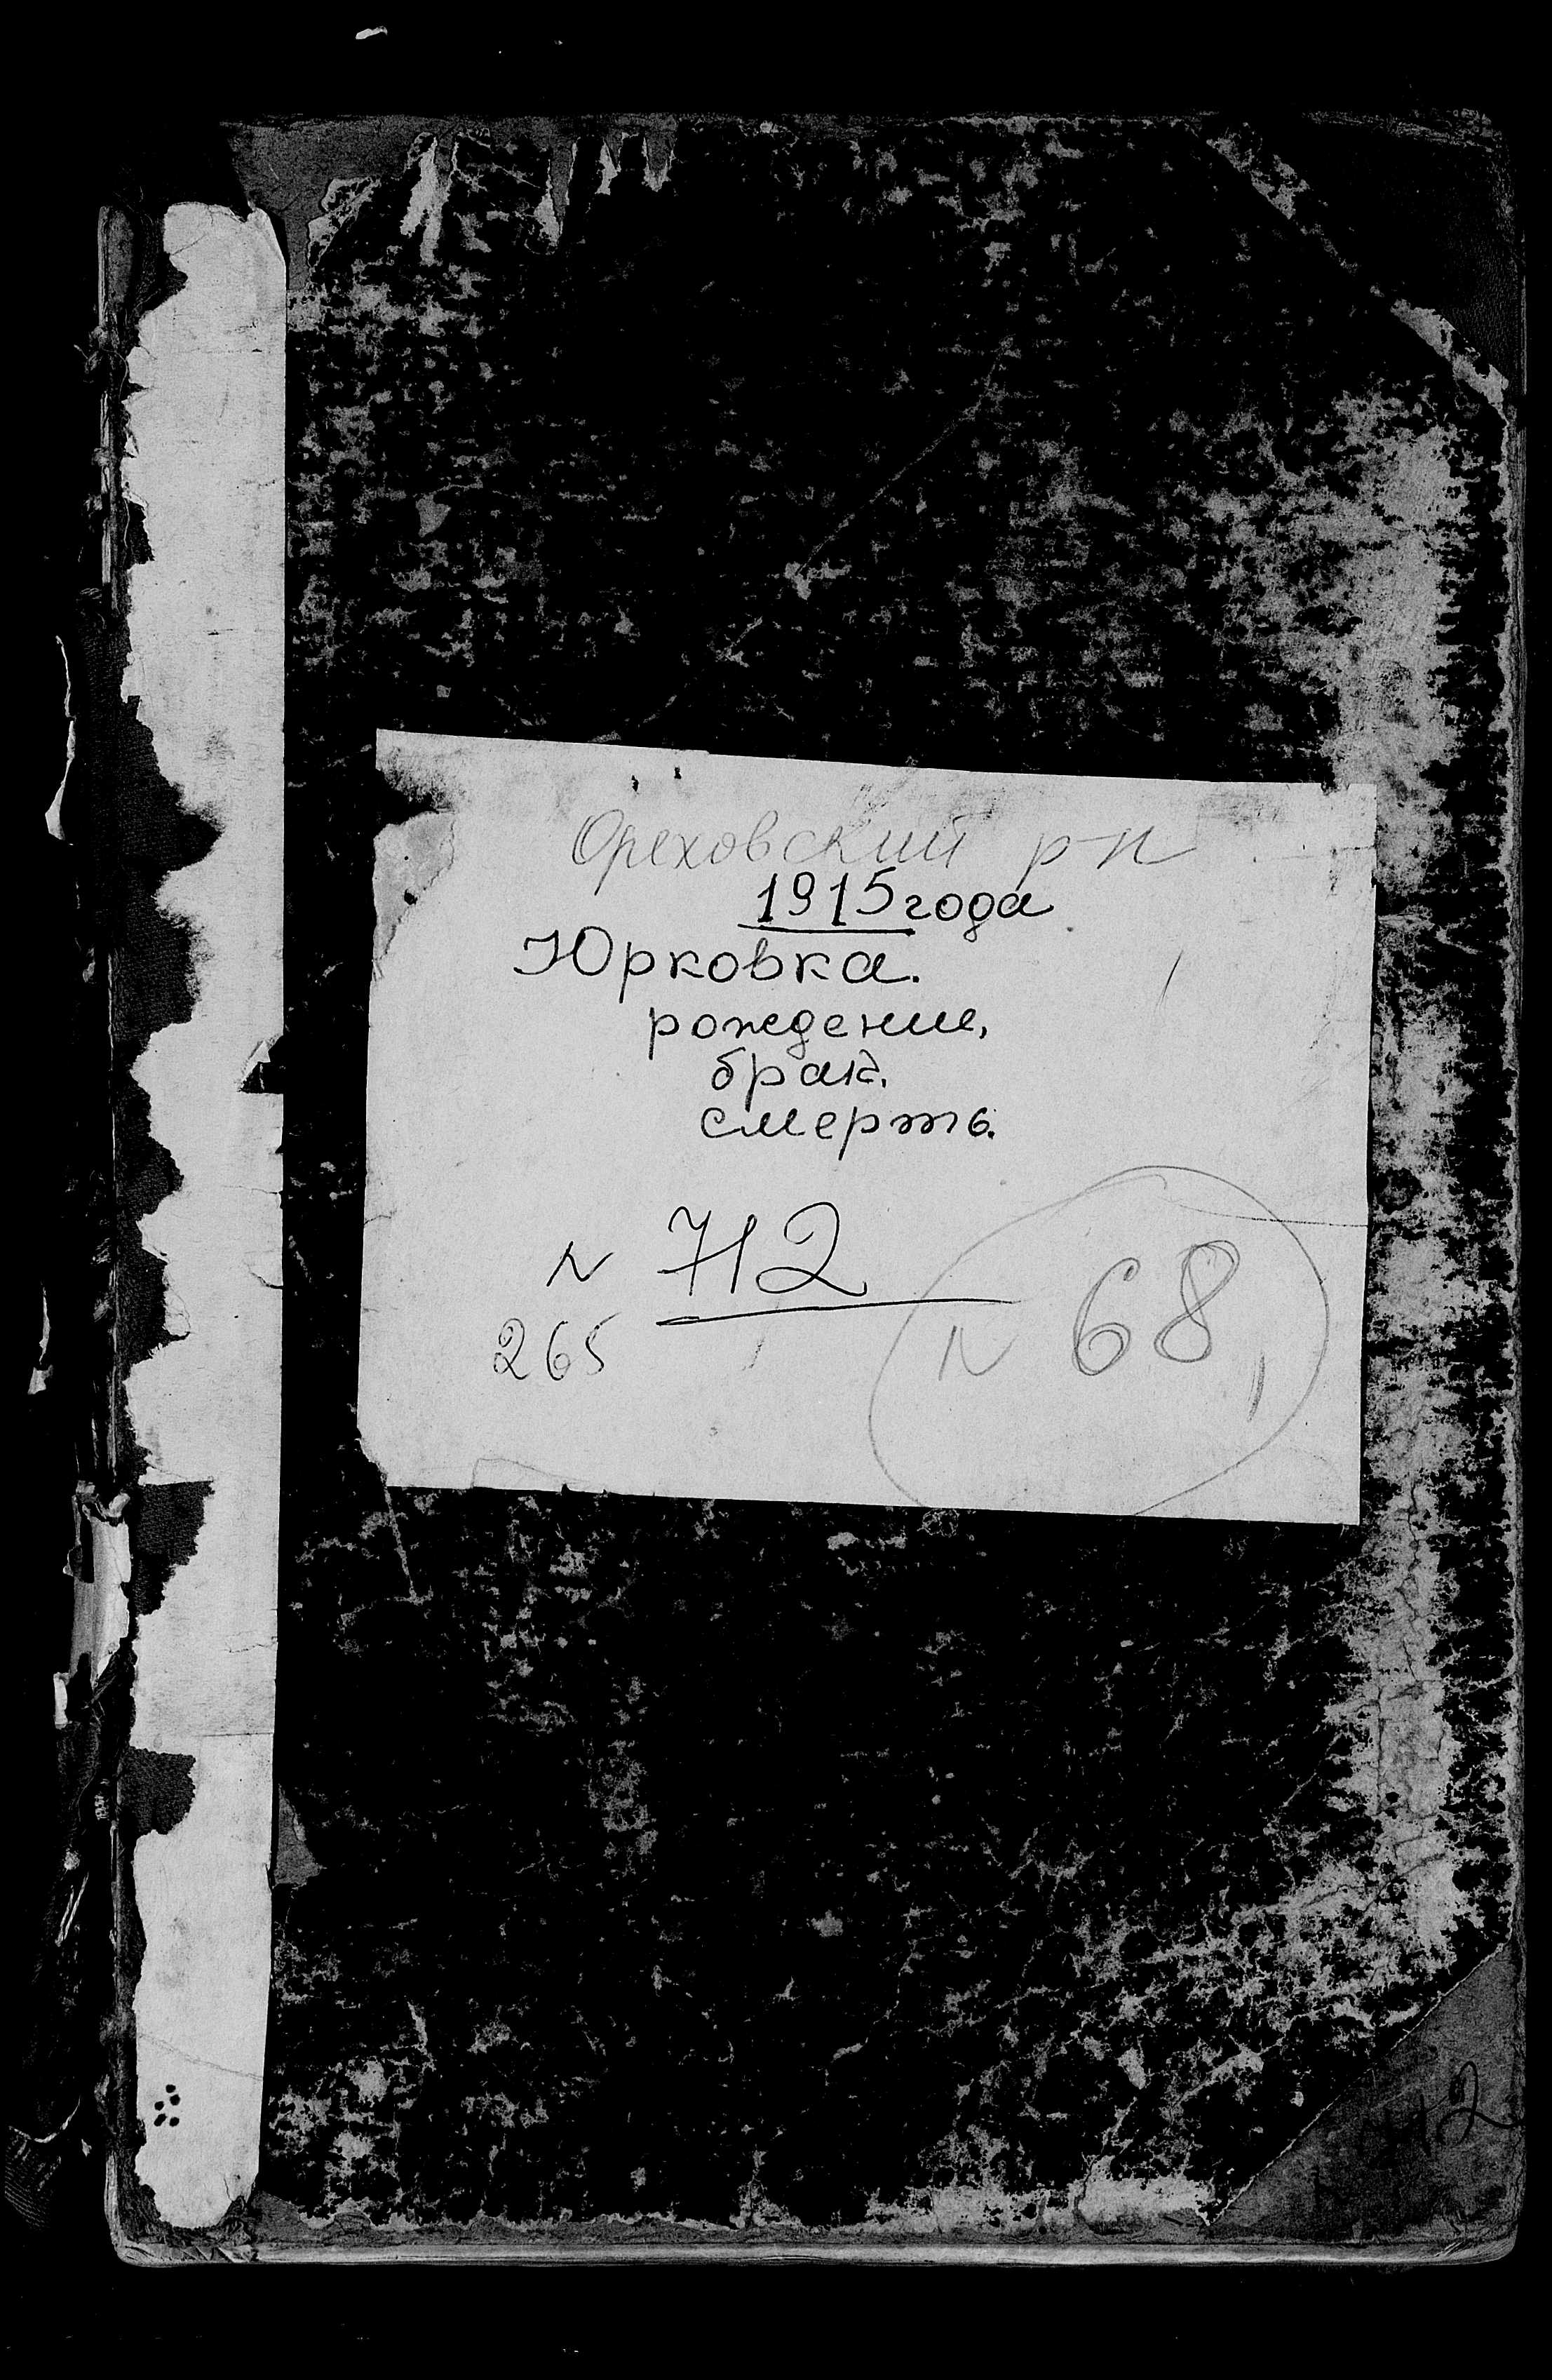 Ореховский р-н
1915 года
Юрковка.
рождение,
брак.
смерть.
N 712
265
N 68